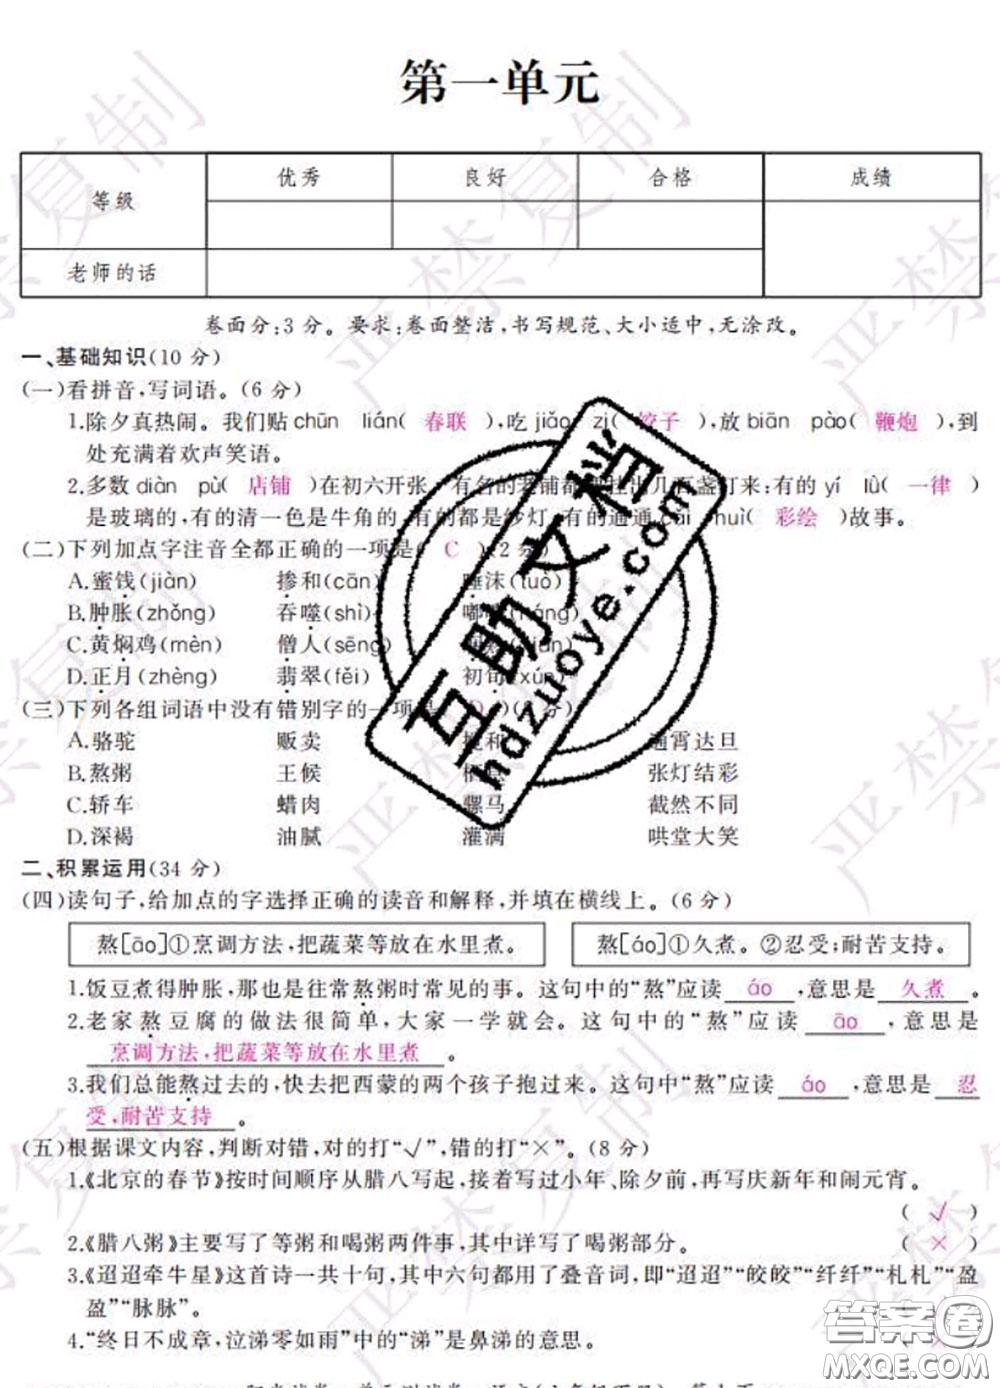 第一单元
等级 优秀 良好 合格 成绩
老师的话
卷面分:3 分。要求:卷面整洁,书写规范、大小适中,无涂改。
一、基础知识(10 分)
(一)看拼音,写词语。(6 分)
1.除夕真热闹。我们贴 chūn lián( 春联 ),吃 jiǎo zi( 饺子 ),放 biān pào( 鞭炮 ),到
处充满着欢声笑语。
2.多数 diàn pù( 店铺 )在初六开张 有名的老铺都 挂出几百盏灯来:有的 yí lǜ( 一律 )
是玻璃的,有的清一色是牛角的 有的都是纱灯 有的通通 cǎi huì( 彩绘 )故事。
(二)下列加点字注音全都正确的一项是( C )(2 分)
A.蜜饯(jiàn) 掺和(cān) 唾沫(tuò)
B.肿胀(zhǒng) 吞噬(shì) 嘟囔(náng)
C.黄焖鸡(mèn) 僧人(sēng)
D.正月(zhèng) 翡翠(fěi) 初旬(xún)
(三)下列各组词语中没有错别字的一项是( D )(2 分)
A.骆驼 贩卖 搅和 通宵达旦
B.熬粥 王候 张灯结彩
C.轿车 蜡肉 骡马 截然不同
D.深褐 油腻 灌满 哄堂大笑
二、积累运用(34 分)
(四)读句子,给加点的字选择正确的读音和解释,并填在横线上。(6 分)
熬[āo]①烹调方法,把蔬菜等放在水里煮。 熬[áo]①久煮。②忍受;耐苦支持。
1.饭豆煮得肿胀,那也是往常熬粥时常见的事。这句中的“熬”应读 áo ,意思是 久煮 。
2.老家熬豆腐的做法很简单,大家一学就会。这句中的“熬”应读 āo ,意思是
烹调方法,把蔬菜等放在水里煮 。
3.我们总能熬过去的,快去把西蒙的两个孩子抱过来。这句中的“熬”应读 áo ,意思是 忍
受,耐苦支持 。
(五)根据课文内容,判断对错,对的打“√”,错的打“×”。(8 分)
1.《北京的春节》按时间顺序从腊八写起,接着写过小年、除夕前,再写庆新年和闹元宵。
( √ )
2.《腊八粥》主要写了等粥和喝粥两件事,其中详写了喝粥部分。 ( × )
3.《迢迢牵牛星》这首诗一共十句,其中六句都用了叠音词,即“迢迢”“皎皎”“纤纤”“札札”“盈
盈”“脉脉”。
4.“终日不成章,泣涕零如雨”中的“涕”是鼻涕的意思。
互助文档
hdzuoye.com
答案圈
MXQE.COM
严禁复制